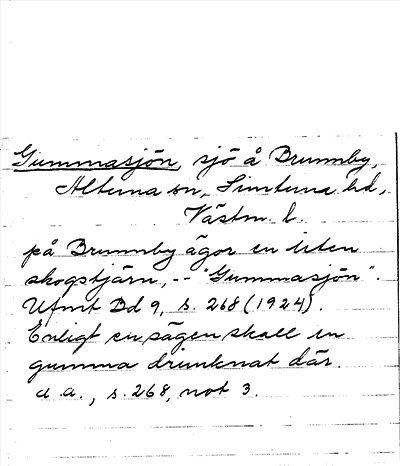 Gummasjön, sjö å Brunnby,
Altuna sn, Simtuna hd,
Västm. l.
på Brunnby ägor en liten
skogstjärn, -- "Gummasjön".
Ufmt Bd 9, s. 268 (1924).
Enligt en sägen skall en
gumma drunknat där.
a. a., s. 268, not 3.